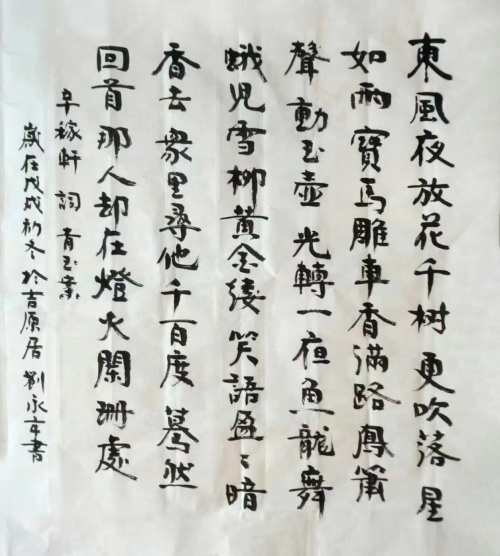 東風夜放花千树更吹落星
如雨寶馬雕車香滿路鳳簫
聲動玉壺光轉一夜魚龍舞
蛾児雪柳黄金缕笑語盈〻暗
香去衆里尋他千百度蓦然
回首那人却在燈火闌珊處
辛稼軒詞青玉案
歲在戊戌初冬於吉原居劉永书